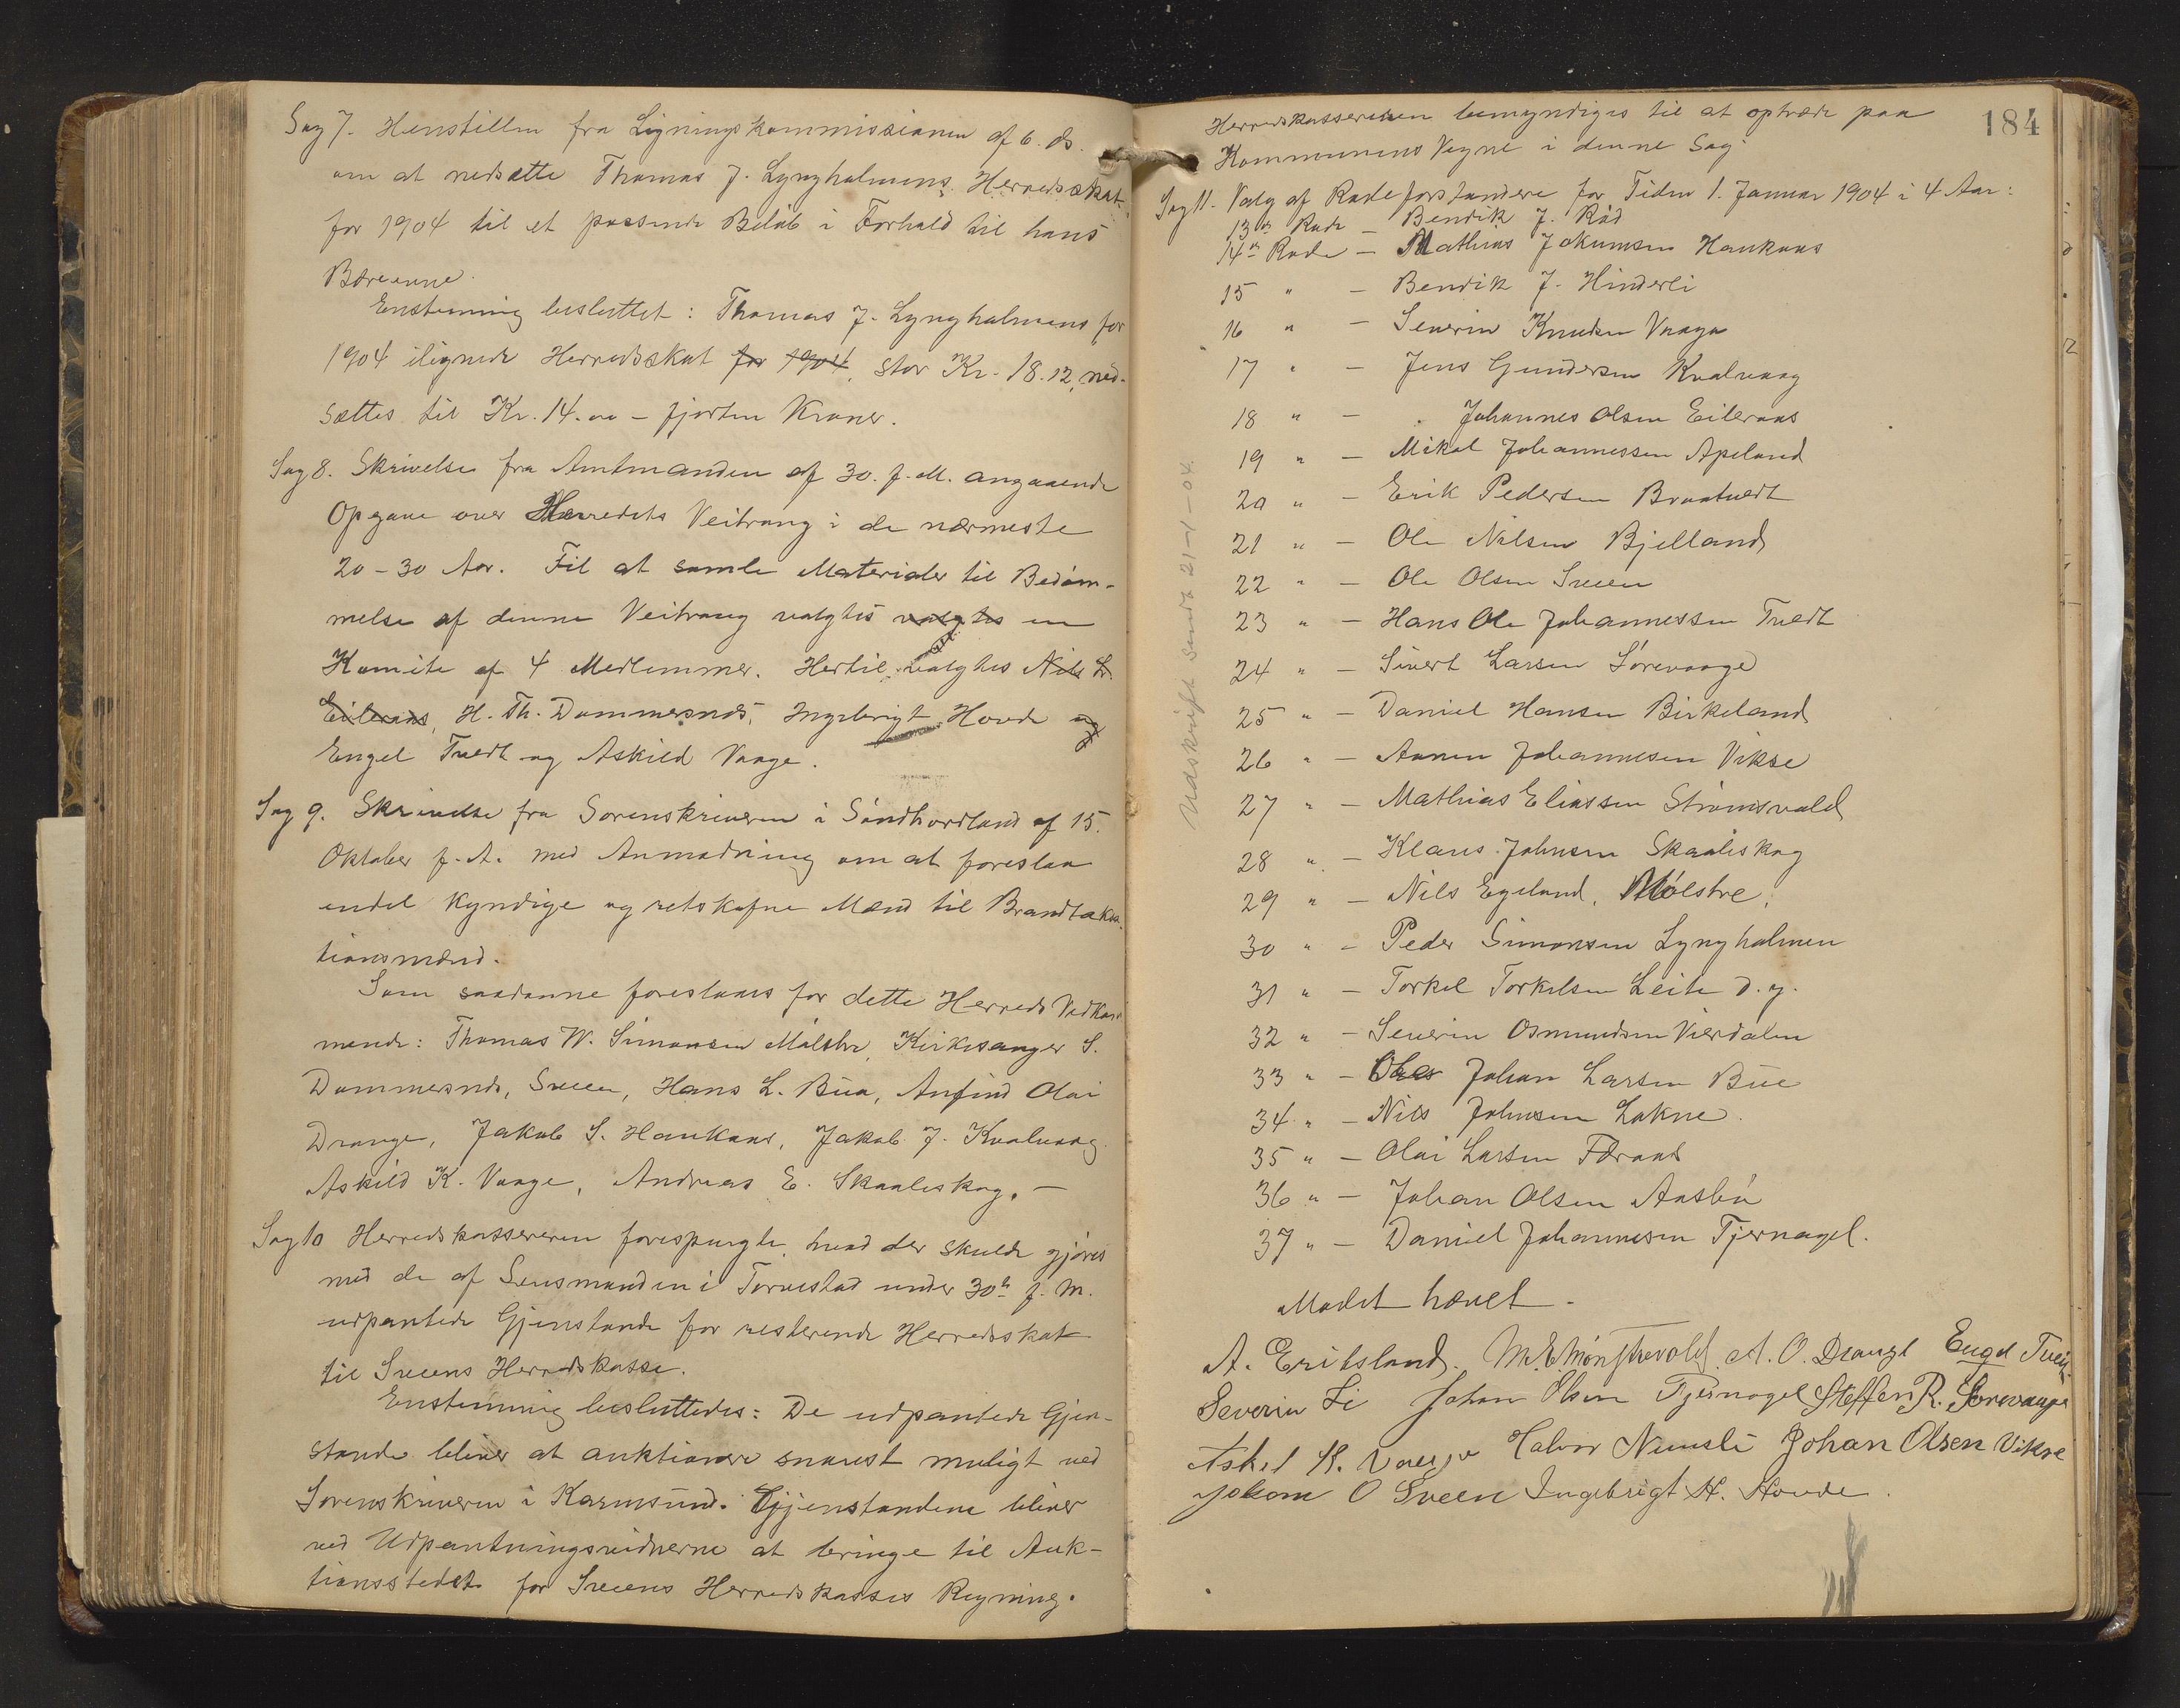 Sag 7. Henstillen fra Ligningskommissionen af 6. ds.
om at nedsætte Thomas J. Lyngholmens Herredsskat
for 1904 til et passende Beløb i Forhold til hans
Bæreevne.
Enstemmig besluttet: Thomas J. Lyngholmens for
1904 ilignede Herredsskat for 1904, stor Kr. 18.12, ned-
sættes til Kr. 14.00 - fjorten Kroner.
Sag 8. Skrivelse fra Amtmanden af 30. f. M. angaaende
Opgave over Herredets Veitrang i de nærmeste
20-30 Aar. Til at samle Materialer til Bedøm-
melse af denne Veitrang valgtes valgtes en
Komite af 4 Medlemmer. Hertil valgtes Nils L.
Eileraas, H. Th. Dommersnes, Ingebrigt Hovde og
Engel Tvedt og Askild Vaage.
Sag 9. Skrivelse fra Sorenskriveren i Søndhordland af 15.
Oktober f. A. med Anmodning om at foreslaa
endel kyndige og retskafne Mænd til Brandtaksa-
tionsmænd.
Som saadanne foreslaaes for dette Herreds Vedkom-
mende: Thomas W. Simonsen Mølstre, Kirkesanger S.
Dommersnes, Sveen, Hans L. Bua, Anfind Olai
Drange, Jakob S. Haukaas, Jakob J. Kvalvaag
Askild K. Vaage, Andreas E. Skaaleskog. -
Sag 10 Herredskassereren forespurgte, hvad der skulde gjøres
med de af Lensmanden i Torvestad under 30te f. M.
udpantede Gjenstande for resterende Herredsskat
til Sveens Herredskasse.
Enstemmig besluttedes: De udpantede Gjen-
stande bliver at auktionere snarest muligt ved
Sorenskriveren i Karmsund. Gjenstandene bliver
ved Udpantningsvidnerne at bringe til Auk-
tionsstedet for Sveens Herredskasses Regning.
184
Herredskassereren bemyndiges til at optræde paa
Kommunens Vegne i denne Sag.
Sag 11. Valg af Rodeforstandere for Tiden 1. Januar 1904 i 4 Aar:
13de Rode - Bendik J. Rød
14de Rode - Mathias Jokumsen Haukaas
15 " - Bendik J. Hinderli
16 " - Severin Knudsen Vaage
17 " - Jens Gundersen Kvalvaag
18 " - Johannes Olsen Eileraas
19 " - Mikal Johannessen Apeland
20 " - Erik Pedersen Braatvedt
21 " - Ole Nilsen Bjelland
22 " - Ole Olsen Sveen
23 " - Hans Ole Johannessen Tvedt
24 " - Sivert Larsen Sørevaage
25 " - Daniel Hansen Birkeland
26 " - Aanen Johannesen Vikse
27 " - Mathias Eliassen Strømsvold
28 " - Klaus Johnsen Skaaleskog
29 " - Nils Egeland, Mølstre,
30 " - Peder Simonsen Lyngholmen
31 " - Torkel Torkelsen Leite d. y.
32 " - Severin Osmundsen Vierdalen
33 " - Johan Larsen Bue
34 " - Nils Johnsen Lokne
35 " - Olai Larsen Færaas
36 " - Johan Olsen Aasbø
37 " - Daniel Johannesen Tjernagel.
Mødet hævet.
A. Eriksland. A. O. Drange Engel Tvedt
Severin Li Johan Olsen Tjernagel Steffen R. Sørevaage
Askel K. Vaage Halvor Nernsli Johan Olsen Vikse
Johan O Sveen Ingebrigt H. Hovde.
Udskrift sendt 21-1-04.